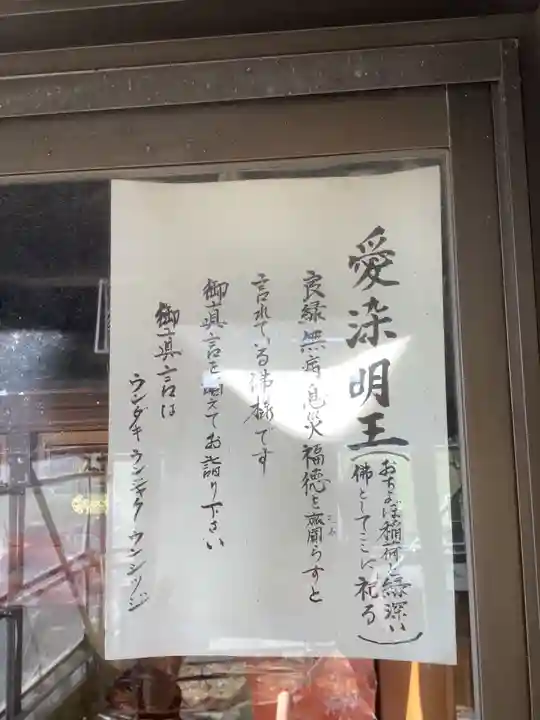 愛染明王
(おちょぼ稲荷と縁深い
佛としてここに祀る)
良縁無病息災福徳を齎らすと
言れている佛様です
御真言を唱えてお詣り下さい
御真言は
ウンダキウンジャクウンシッジ